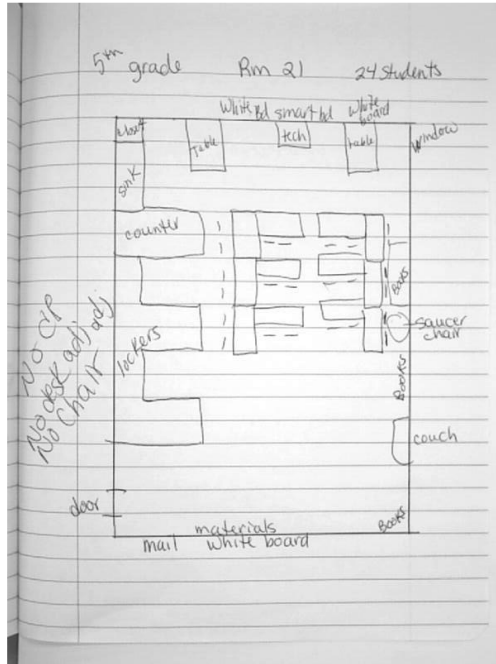 5th grade Rm 21 24 students
White Bd smart bd White board
Table tech table window
sink
counter
Books
saucer chair
lockers
Books
No CP
No desk adj
No Chair adj
couch
door
Books
materials
mail White board